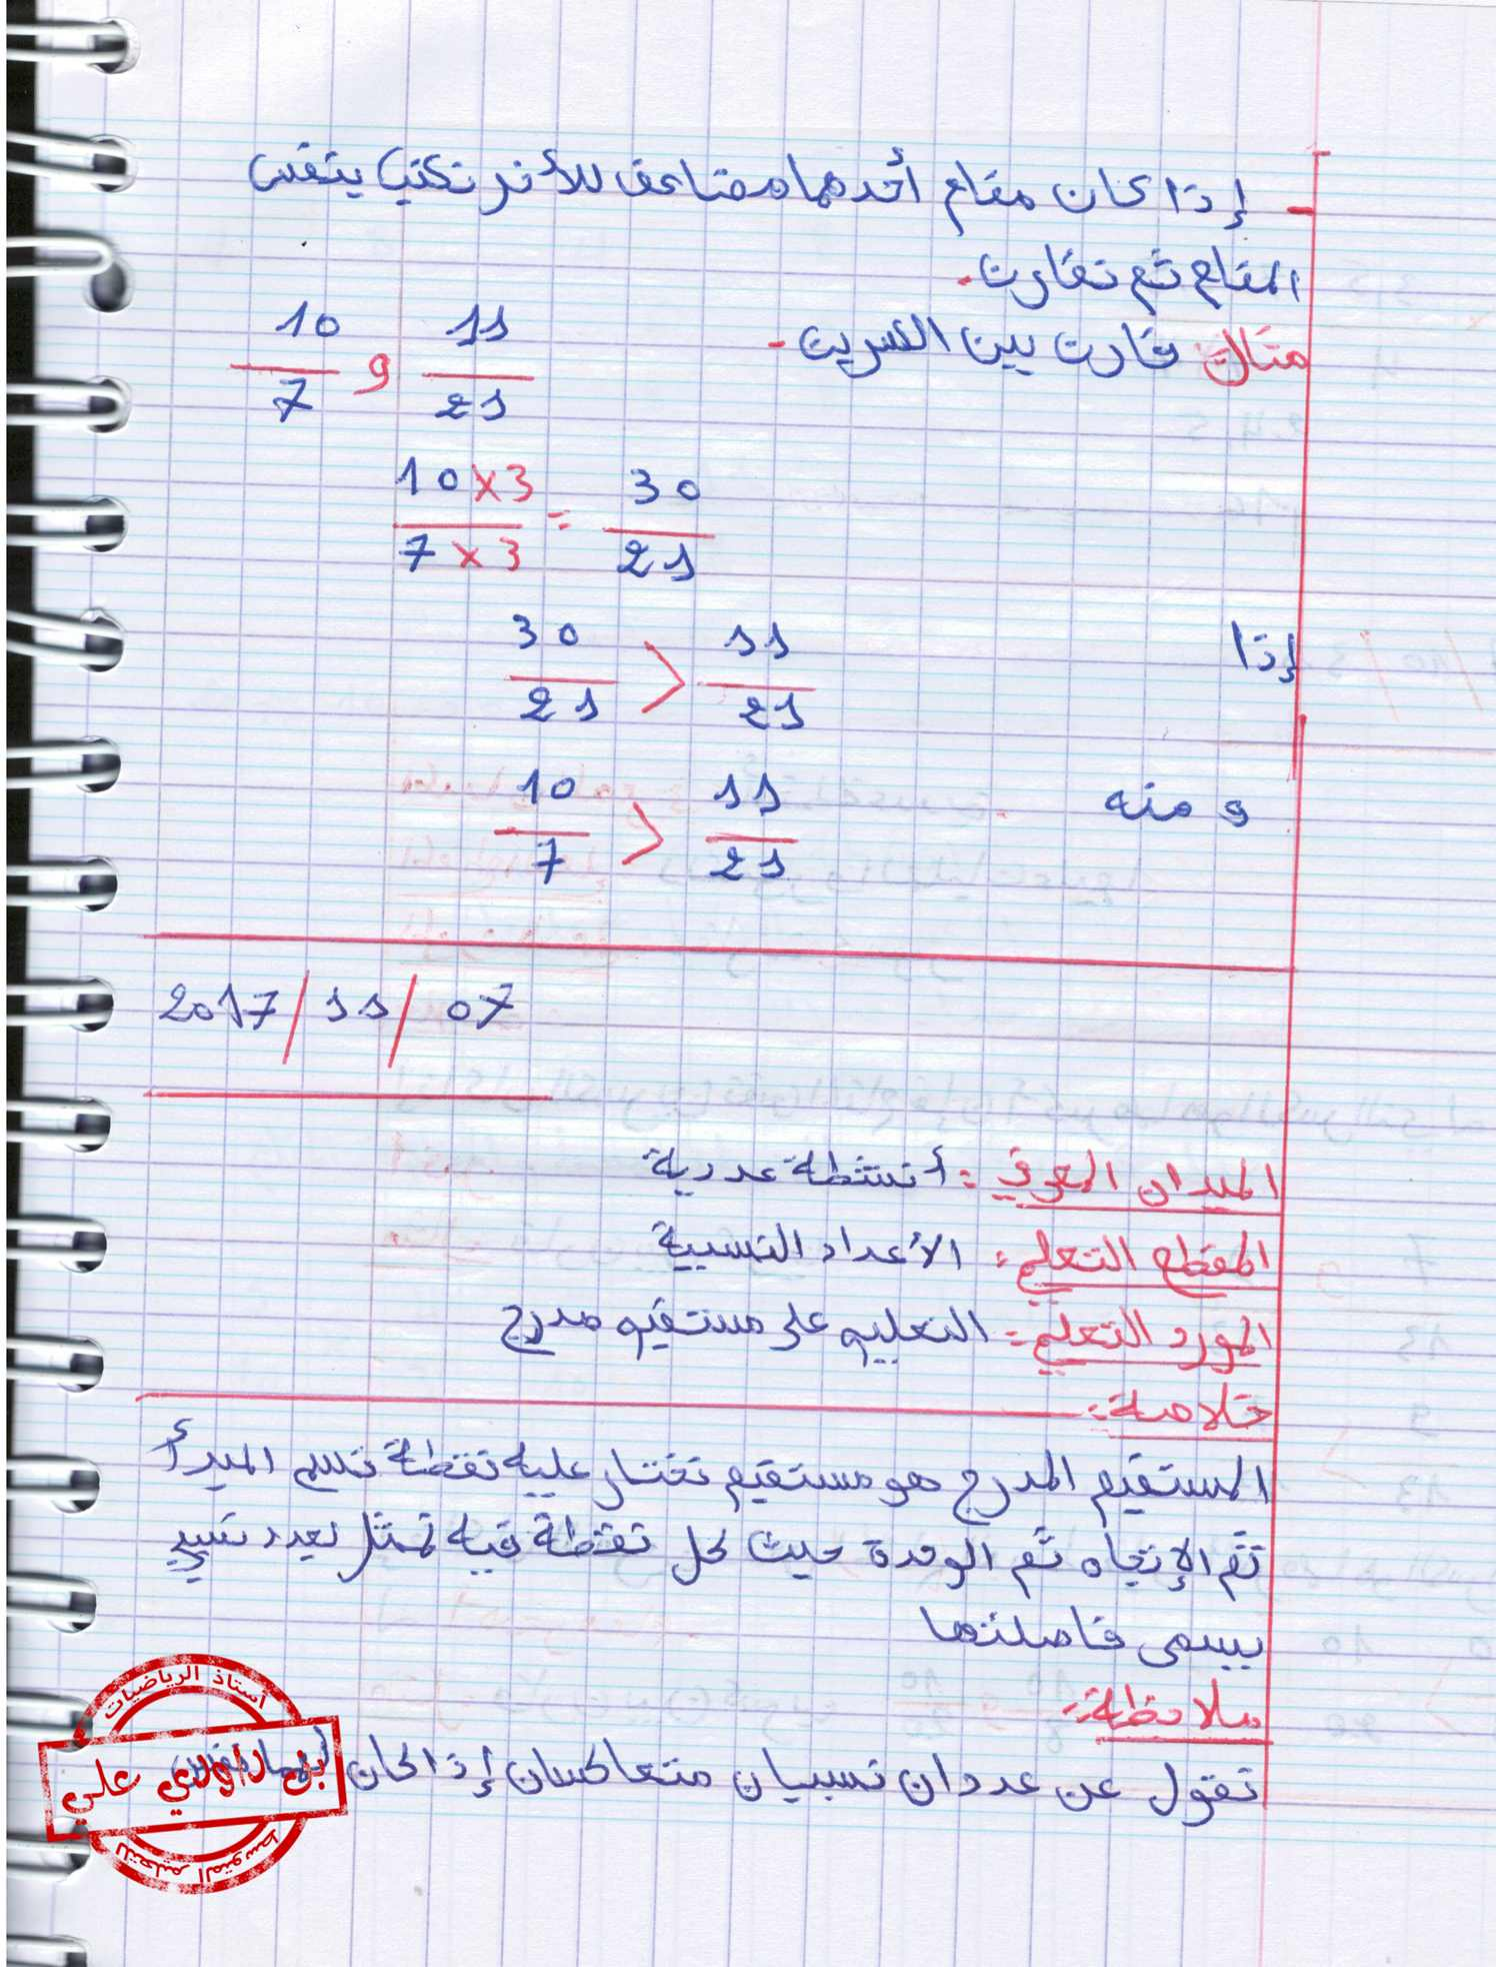 - إذا كان مقام أحدهما مضاعف للأخر نكتب بنفس
المقام ثم نقارن.
مثال قارن بين الكسرين - 11/21 و 10/7
10×3/7×3 = 30/21
إذا 30/21 > 11/21
و منه 10/7 > 11/21
2017/11/07
الميدان المعرفي: أنشطة عددية
المقطع التعلمي: الأعداد النسبية
المورد التعلمي: التعليم على مستقيم مدرج
خلاصة:
المستقيم المدرج هو مستقيم نختار عليه نقطة نسم المبدأ
ثم الإتجاه ثم الوحدة حيث كل نقطة فيه تمثل بعدد نسبي
يسمى فاصلتها
ملاحظة:
نقول عن عددان نسبيان متعاكسان إذا كان لهما
أستاذ الرياضيات
بن داودي علي
للتعليم المتوسط